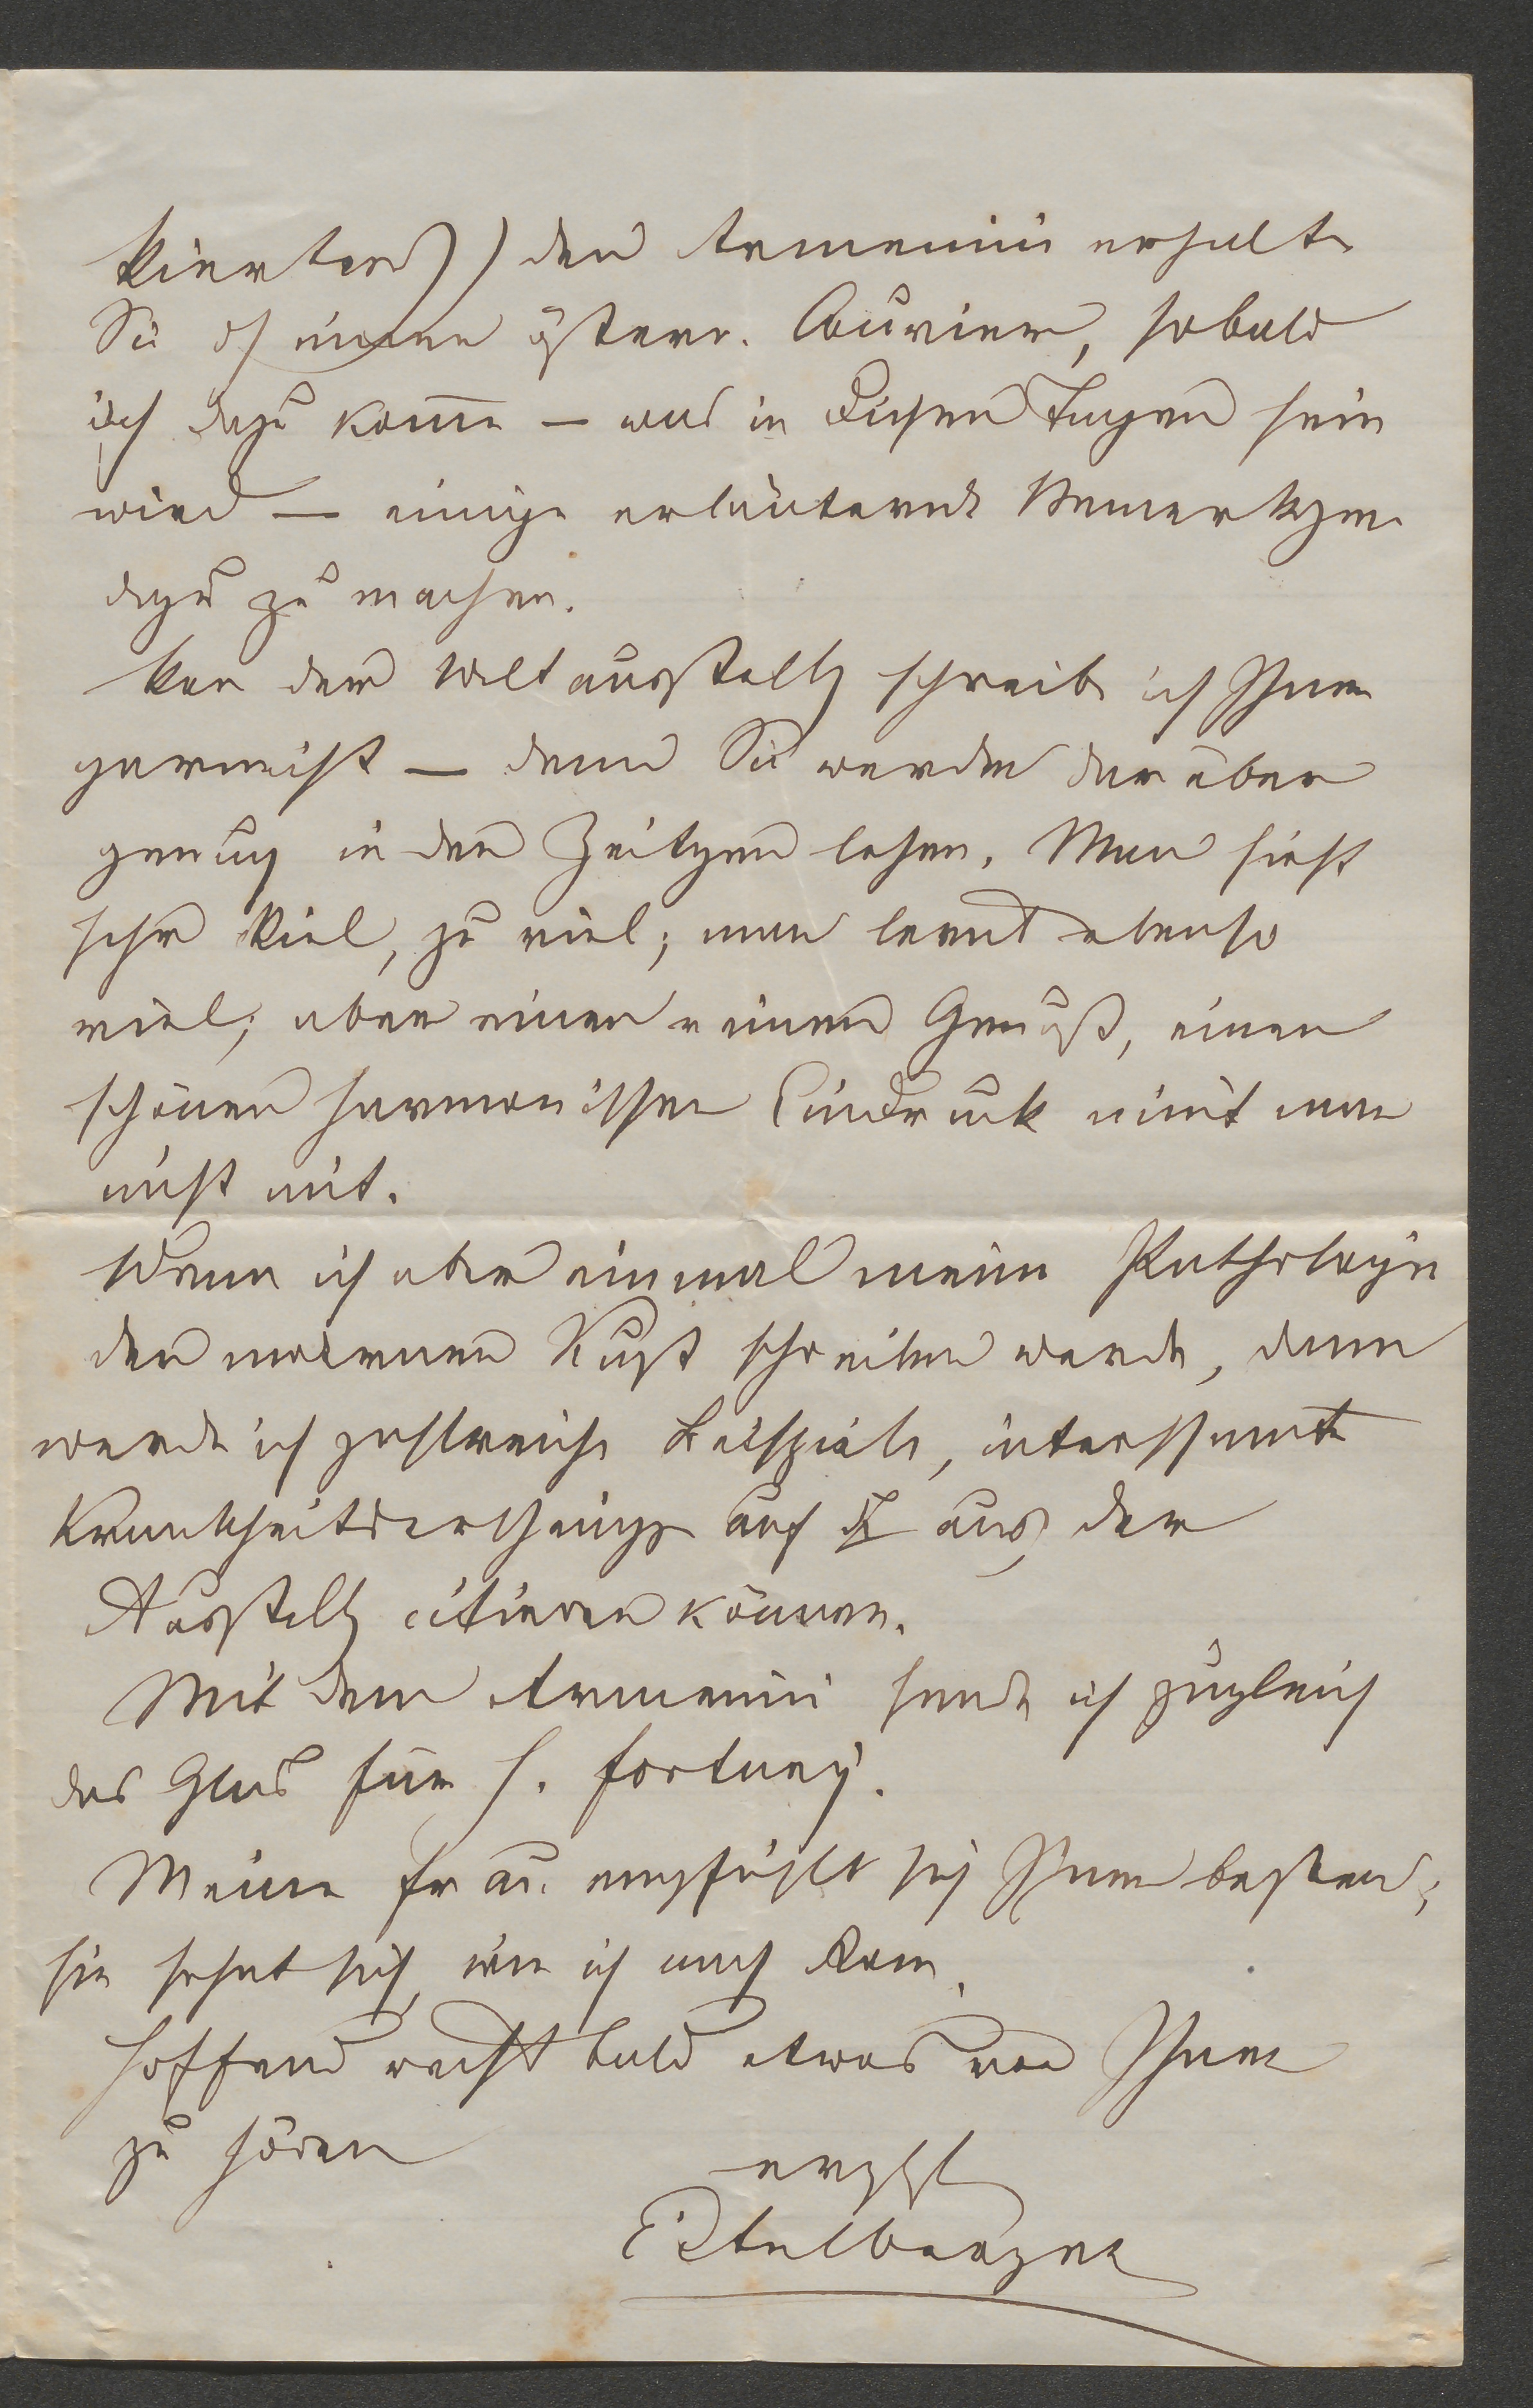 Viertens) den Armenini erhalte
Sie dh einen österr. Courier, sobald
ich dazu kome – was in diesen Tagen sein
wird – einige erläuternde Bemerkgen
dazu zu machen.
Von der Weltausstellg schreibe ich Ihnen
gar nicht – denn Sie werden darüber
genug in den Zeitgen lesen. Man sieht
sehr viel, zu viel; man lernt ebenso
viel; aber einen reinen Genuß, einen
schönen harmonischen Eindruck nimt man
nicht mit.
Wenn ich aber einmal meine Pathologie
der modernen Kunst schreiben werde, dann
werde ich zahlreiche Beispiele, interessante
Krankheitserscheingen auf aus der
Ausstellg citieren können.
Mit dem Armenini sende ich zugleich
das Glas für H. Fortuny.
Meine Frau empfiehlt sich Ihnen bestens;
sie sehnt sich, wie ich nach Rom.
Hoffend recht bald etwas von Ihnen
zu hören
ergbst
Eitelberger